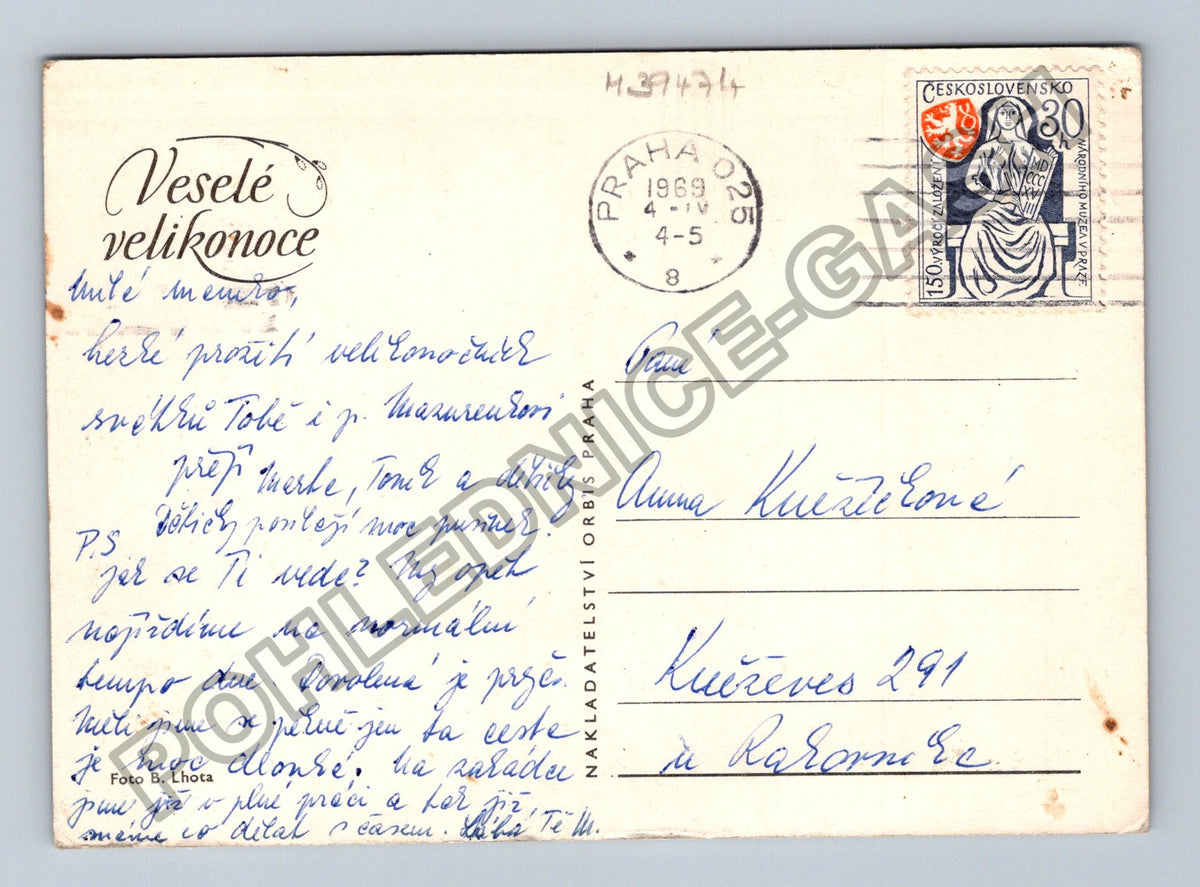 M 39474
ČESKOSLOVENSKO
30 h
150. VÝROČÍ ZALOŽENÍ
NÁRODNÍHO MUZEA V PRAZE
MD
CCC
XV
III
PRAHA 025
1969
4 -IV
4-5
8
Veselé
velikonoce
Milá maminko,
hezké prožití velikonočních
svátků Tobě i p. Mazurenkovi
přejí Marta, Toník a dětičky
Dětičky posílají moc pusinek!
P.S.
jak se Ti vede? My opět
najíždíme na normální
tempo dne. Dovolená je pryč.
Měli jsme se pěkně jen ta cesta
je moc dlouhá. Na zahrádce
jsme již v plné práci a tak již
máme co dělat s časem. Líbá Tě M.
Foto B. Lhota
NAKLADATELSTVÍ ORBIS PRAHA
Paní
Anna Kněžíčková
Kněževes 291
u Rakovníka
POHLEDNICE-GA